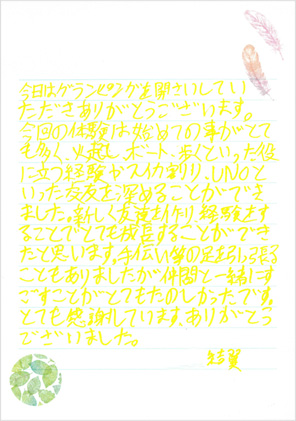 今日はグランピングを開さいしてい
ただきありがとうございます。
今回の体験は始めての事がとて
も多く、火起し、ボート、歩くといった役
に立つ経験やスイカわり、UNOと
いった交友を深めることができ
ました。新しく友達を作り経験をす
ることでとても成長することができ
たと思います。手伝い等の足を引っ張る
こともありましたが仲間と一緒にす
ごすことがとてもたのしかったです。
とても感謝しています、ありがとう
ございました。